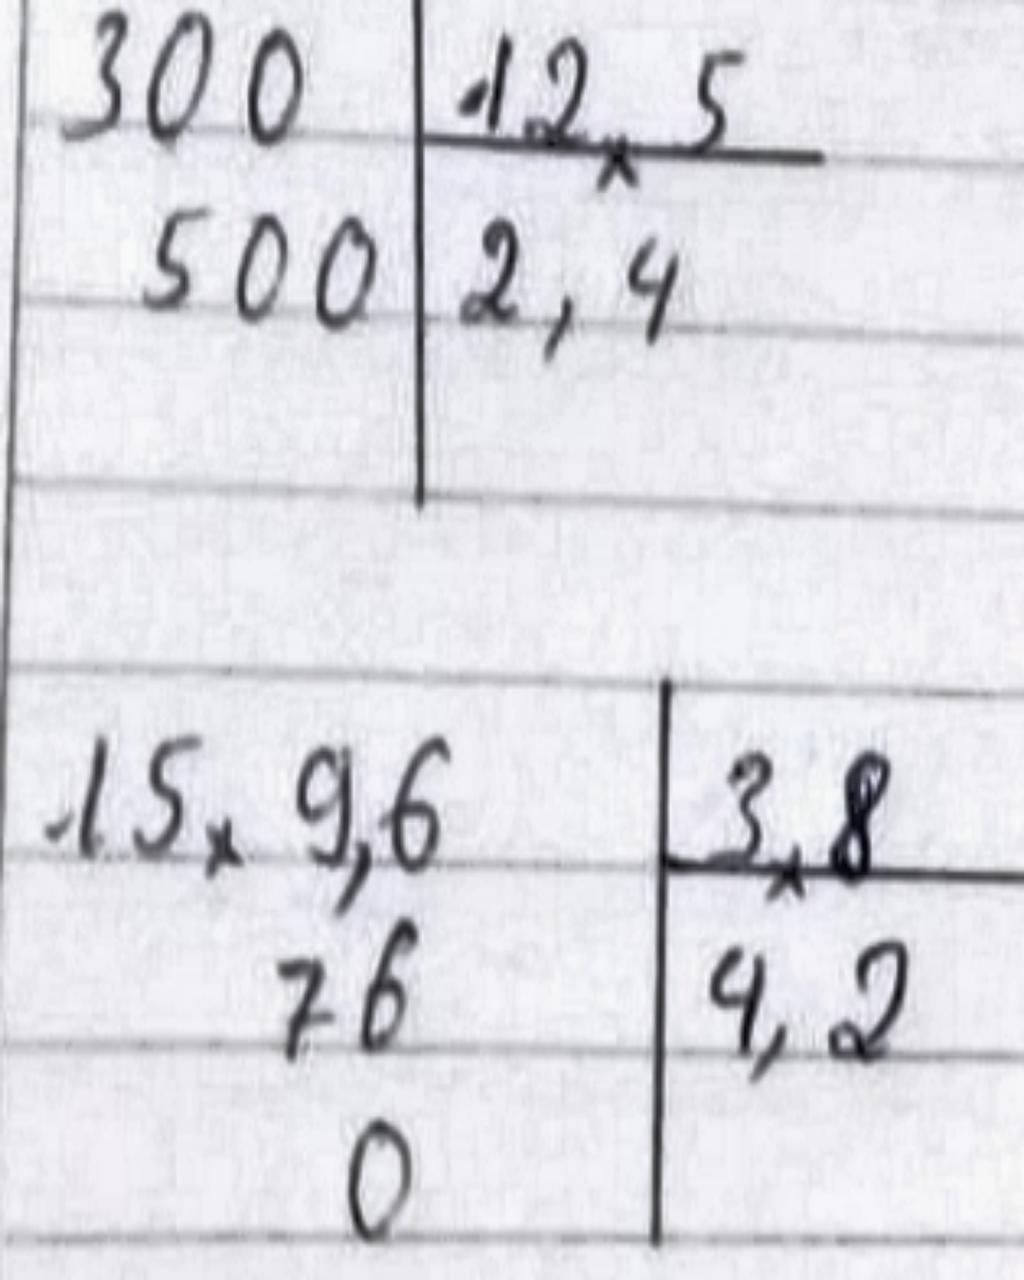 300 12,5
500 2,4
15,9,6 3,8
76 4,2
0